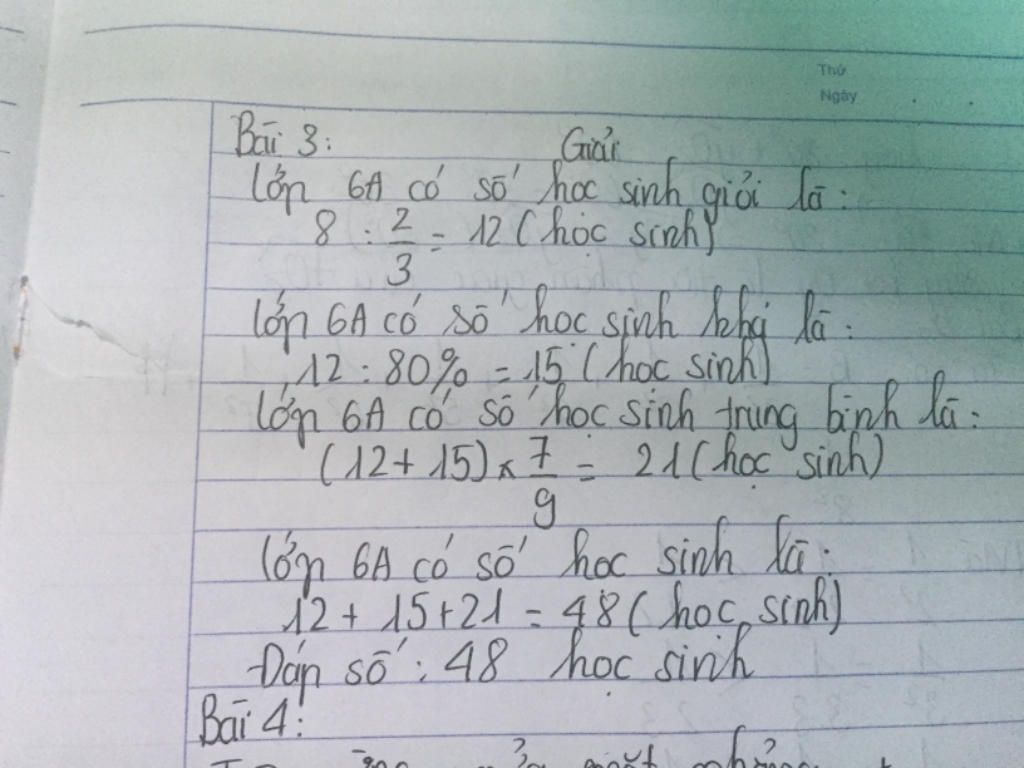 Thứ
Ngày
Bài 3: Giải
Lớp 6A có số học sinh giỏi là:
8 : 2/3 = 12 (học sinh)
Lớp 6A có số học sinh khá là:
12 : 80% = 15 (học sinh)
Lớp 6A có số học sinh trung bình là:
(12 + 15) x 7/9 = 21 (học sinh)
Lớp 6A có số học sinh là:
12 + 15 + 21 = 48 (học sinh)
Đáp số: 48 học sinh
Bài 4: